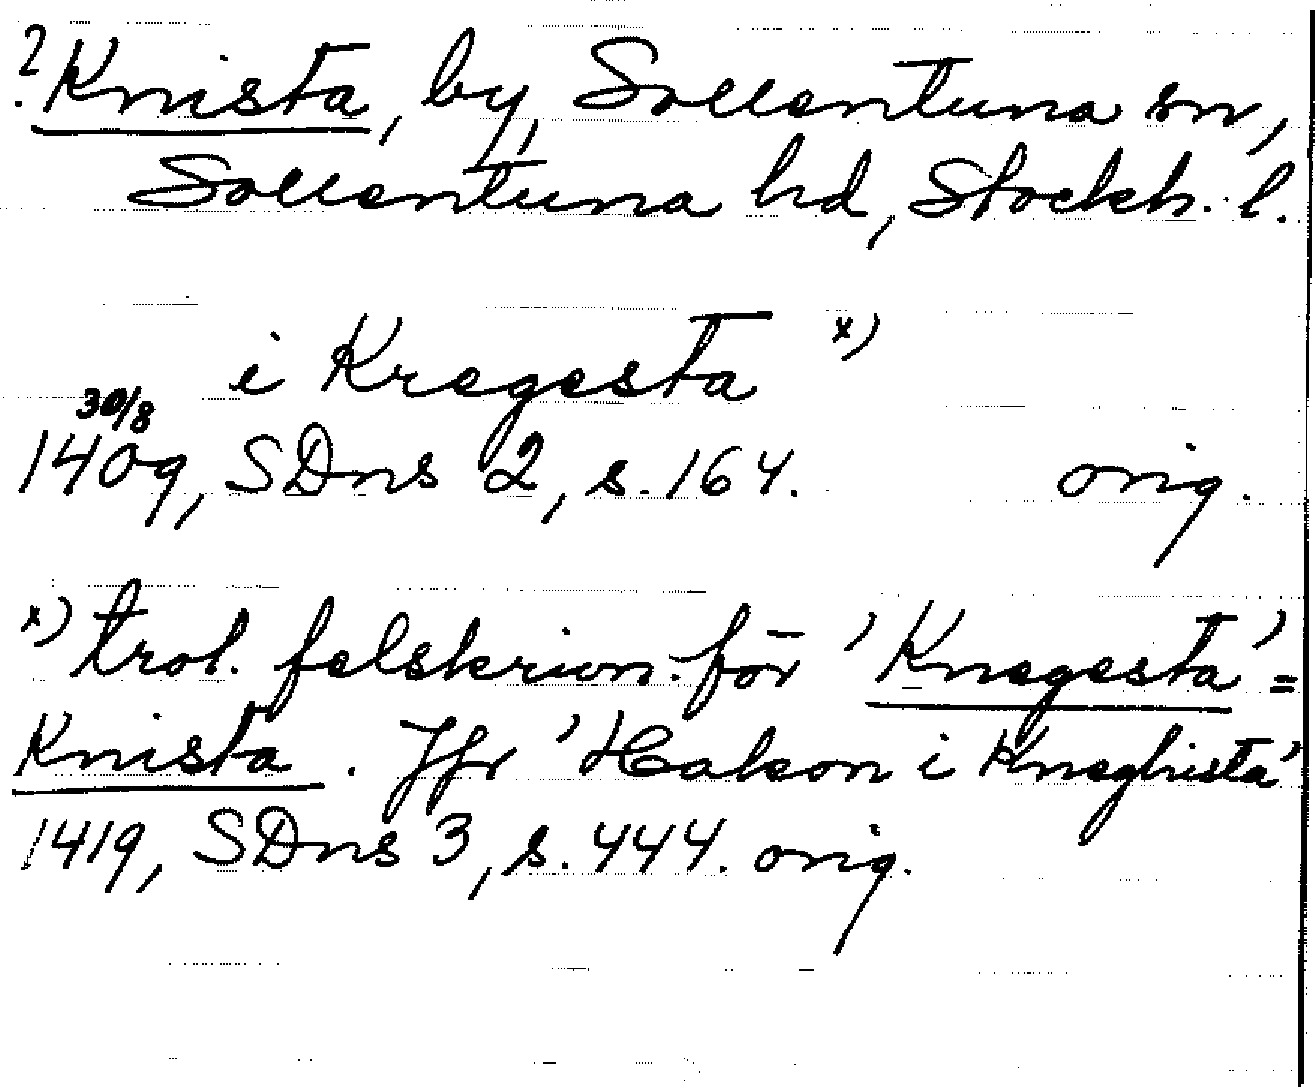 ? Knista, by, Sollentuna sn,
Sollentuna hd, Stockh. l.
i Kregesta x)
30/8
1409, SDns 2, s. 164. orig.
x) trol. felskrivn. för 'Knegesta' =
Knista. Jfr 'Hakon i Kneghista'
1419, SDns 3, s. 444. orig.